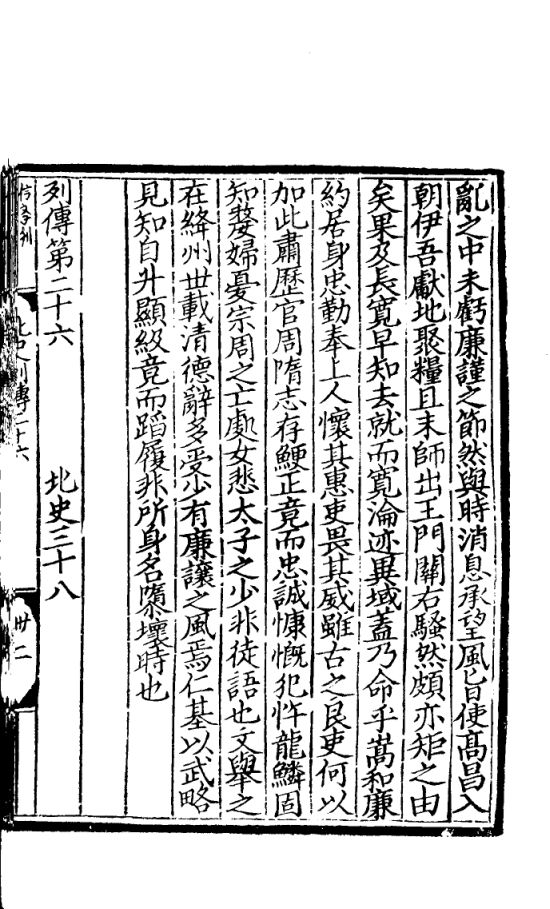 亂之中未虧廉謹之節然與時消息承望風旨使髙昌入
朝伊吾獻地聚糧且末師出玉門關右騷然頗亦矩之由
矣果及長寛早知去就而寛淪迹異域蓋乃命乎嵩和廉
約居身忠勤奉上人懷其惠吏畏其威雖古之良吏何以
加此肅歷官周隋志存鯁正竟而忠誠慷慨犯忤龍鱗固
知嫠婦憂宗周之亡處女悲太子之少非徒語也文舉之
在絳州世載清德辭多受少有廉讓之風焉仁基以武略
見知自升顯級竟而蹈履非所身名隳壞時也
列傳第二十六 北史三十八
北史列傳二十六
卅二